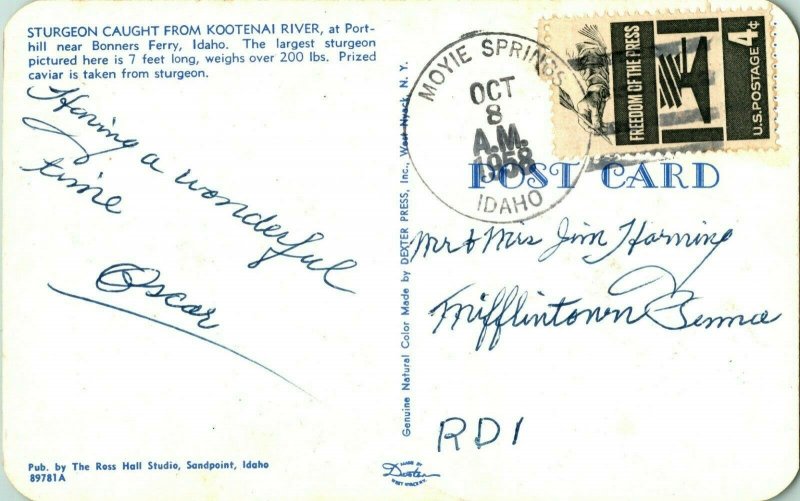 STURGEON CAUGHT FROM KOOTENAI RIVER, at Port-
hill near Bonners Ferry, Idaho. The largest sturgeon
pictured here is 7 feet long, weighs over 200 lbs. Prized
caviar is taken from sturgeon.
Having a wonderful
time
Oscar
Pub. by The Ross Hall Studio, Sandpoint, Idaho
89781A
Genuine Natural Color Made by DEXTER PRESS, Inc., West Nyack, N. Y.
MOYIE SPRINGS
OCT
8
A.M.
1958
IDAHO
FREEDOM OF THE PRESS
U.S. POSTAGE 4¢
POST CARD
Mr & Mrs Jim Horning
Mifflintown Penna
RD1
MADE BY
Dexter
WEST NYACK, N.Y.